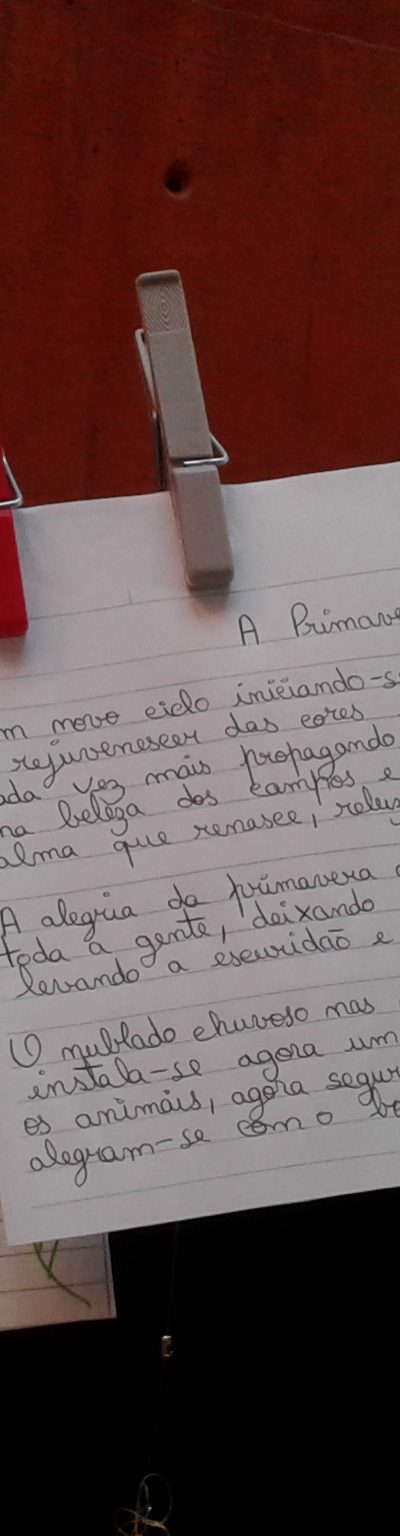 A Primave
m novo ciclo iniciando-s
rejuvenescer das cores
ada vez mais propagando
na beleza dos campos e
alma que renasce, reluz
A alegria da primavera
toda a gente, deixando
levando a escuridão e
O nublado chuvoso mas
instala-se agora um
os animais, agora segur
alegram-se com o be